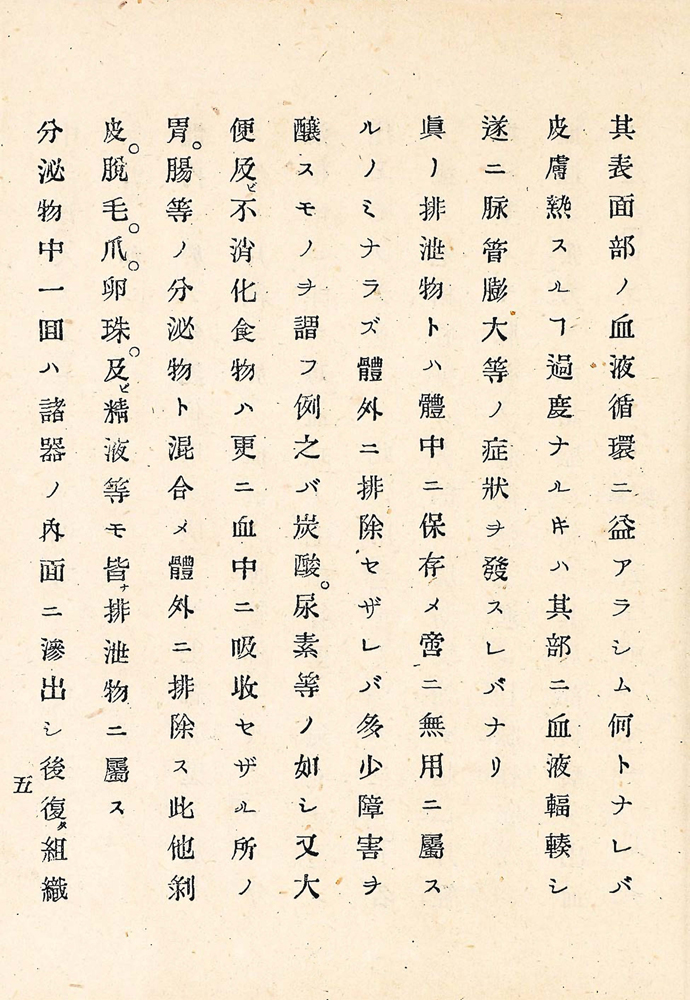 其表面部ノ血液循環ニ益アラシム何トナレバ
皮膚熱スルヿ過度ナルキハ其部ニ血液輻輳シ
遂ニ脉管膨大等ノ症狀ヲ發スレバナリ
眞ノ排泄物トハ體中ニ保存メ啻ニ無用ニ屬ス
ルノミナラズ體外ニ排除セザレバ多少障害ヲ
釀スモノヲ謂フ例之バ炭酸。尿素等ノ如シ又大
便及ビ不消化食物ハ更ニ血中ニ吸收セザル所ノ
胃。腸等ノ分泌物ト混合メ體外ニ排除ス此他剝
皮。脫毛。爪。卵珠。及ビ精液等モ皆ナ排泄物ニ屬ス
分泌物中一回ハ諸器ノ內面ニ滲出シ後復タ組織
五